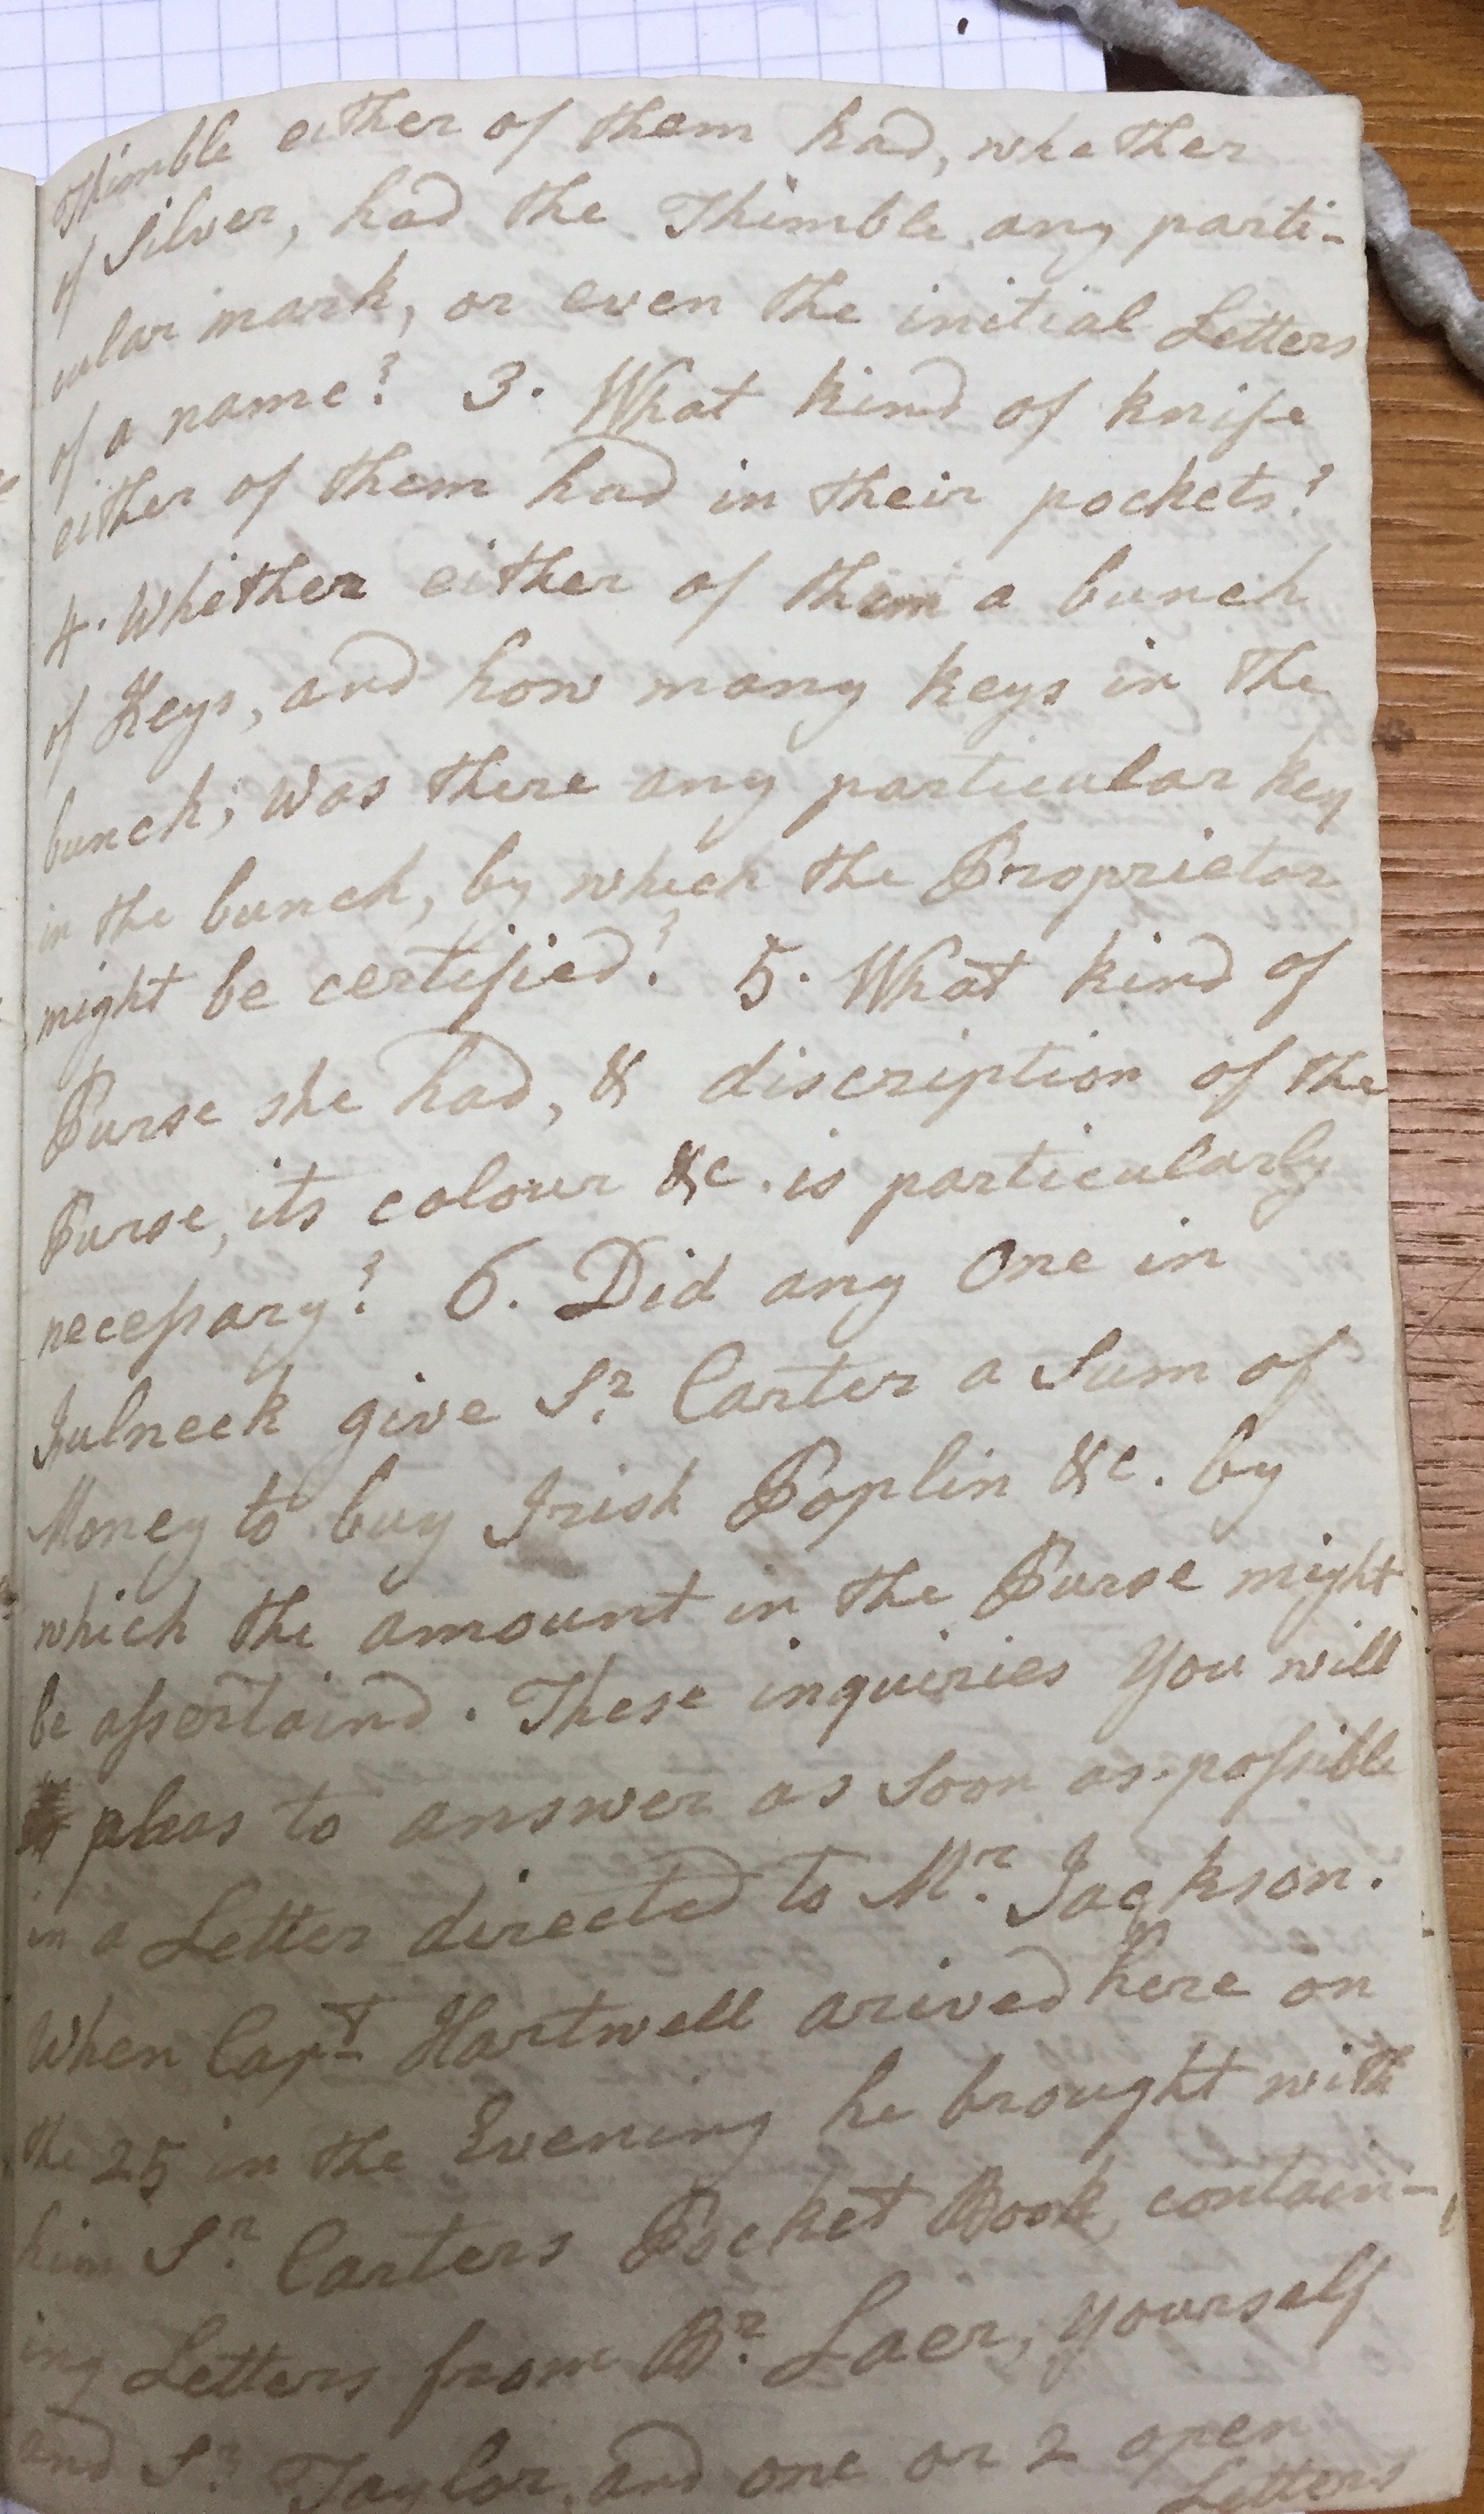 Thimble either of them had, whether
of Silver, had the Thimble any parti-
cular mark, or even the initial Letters
of a name? 3. What kind of knife
either of them had in their pockets?
4. Whether either of them a bunch
of Keys, and how many keys in the
bunch; Was there any particular key
in the bunch, by which the Proprietor
might be certified? 5. What kind of
Purse she had, & discription of the
Purse, its colour &c. is particularly
necessary? 6. Did any One in
Fulneck give Sr. Carter a Sum of
Money to buy Irish Poplin &c. by
which the amount in the Purse might
be assertaind. These inquiries You will
pleas to answer as Soon as possible
in a Letter directed to Mr. Jackson.
When Capt. Hartwell arived here on
the 25 in the Evening he brought with
him Sr. Carters Pocket Book, contain-
ing Letters from Br. Laer, yourself
and Sr. Taylor, and one or 2 open
Letters